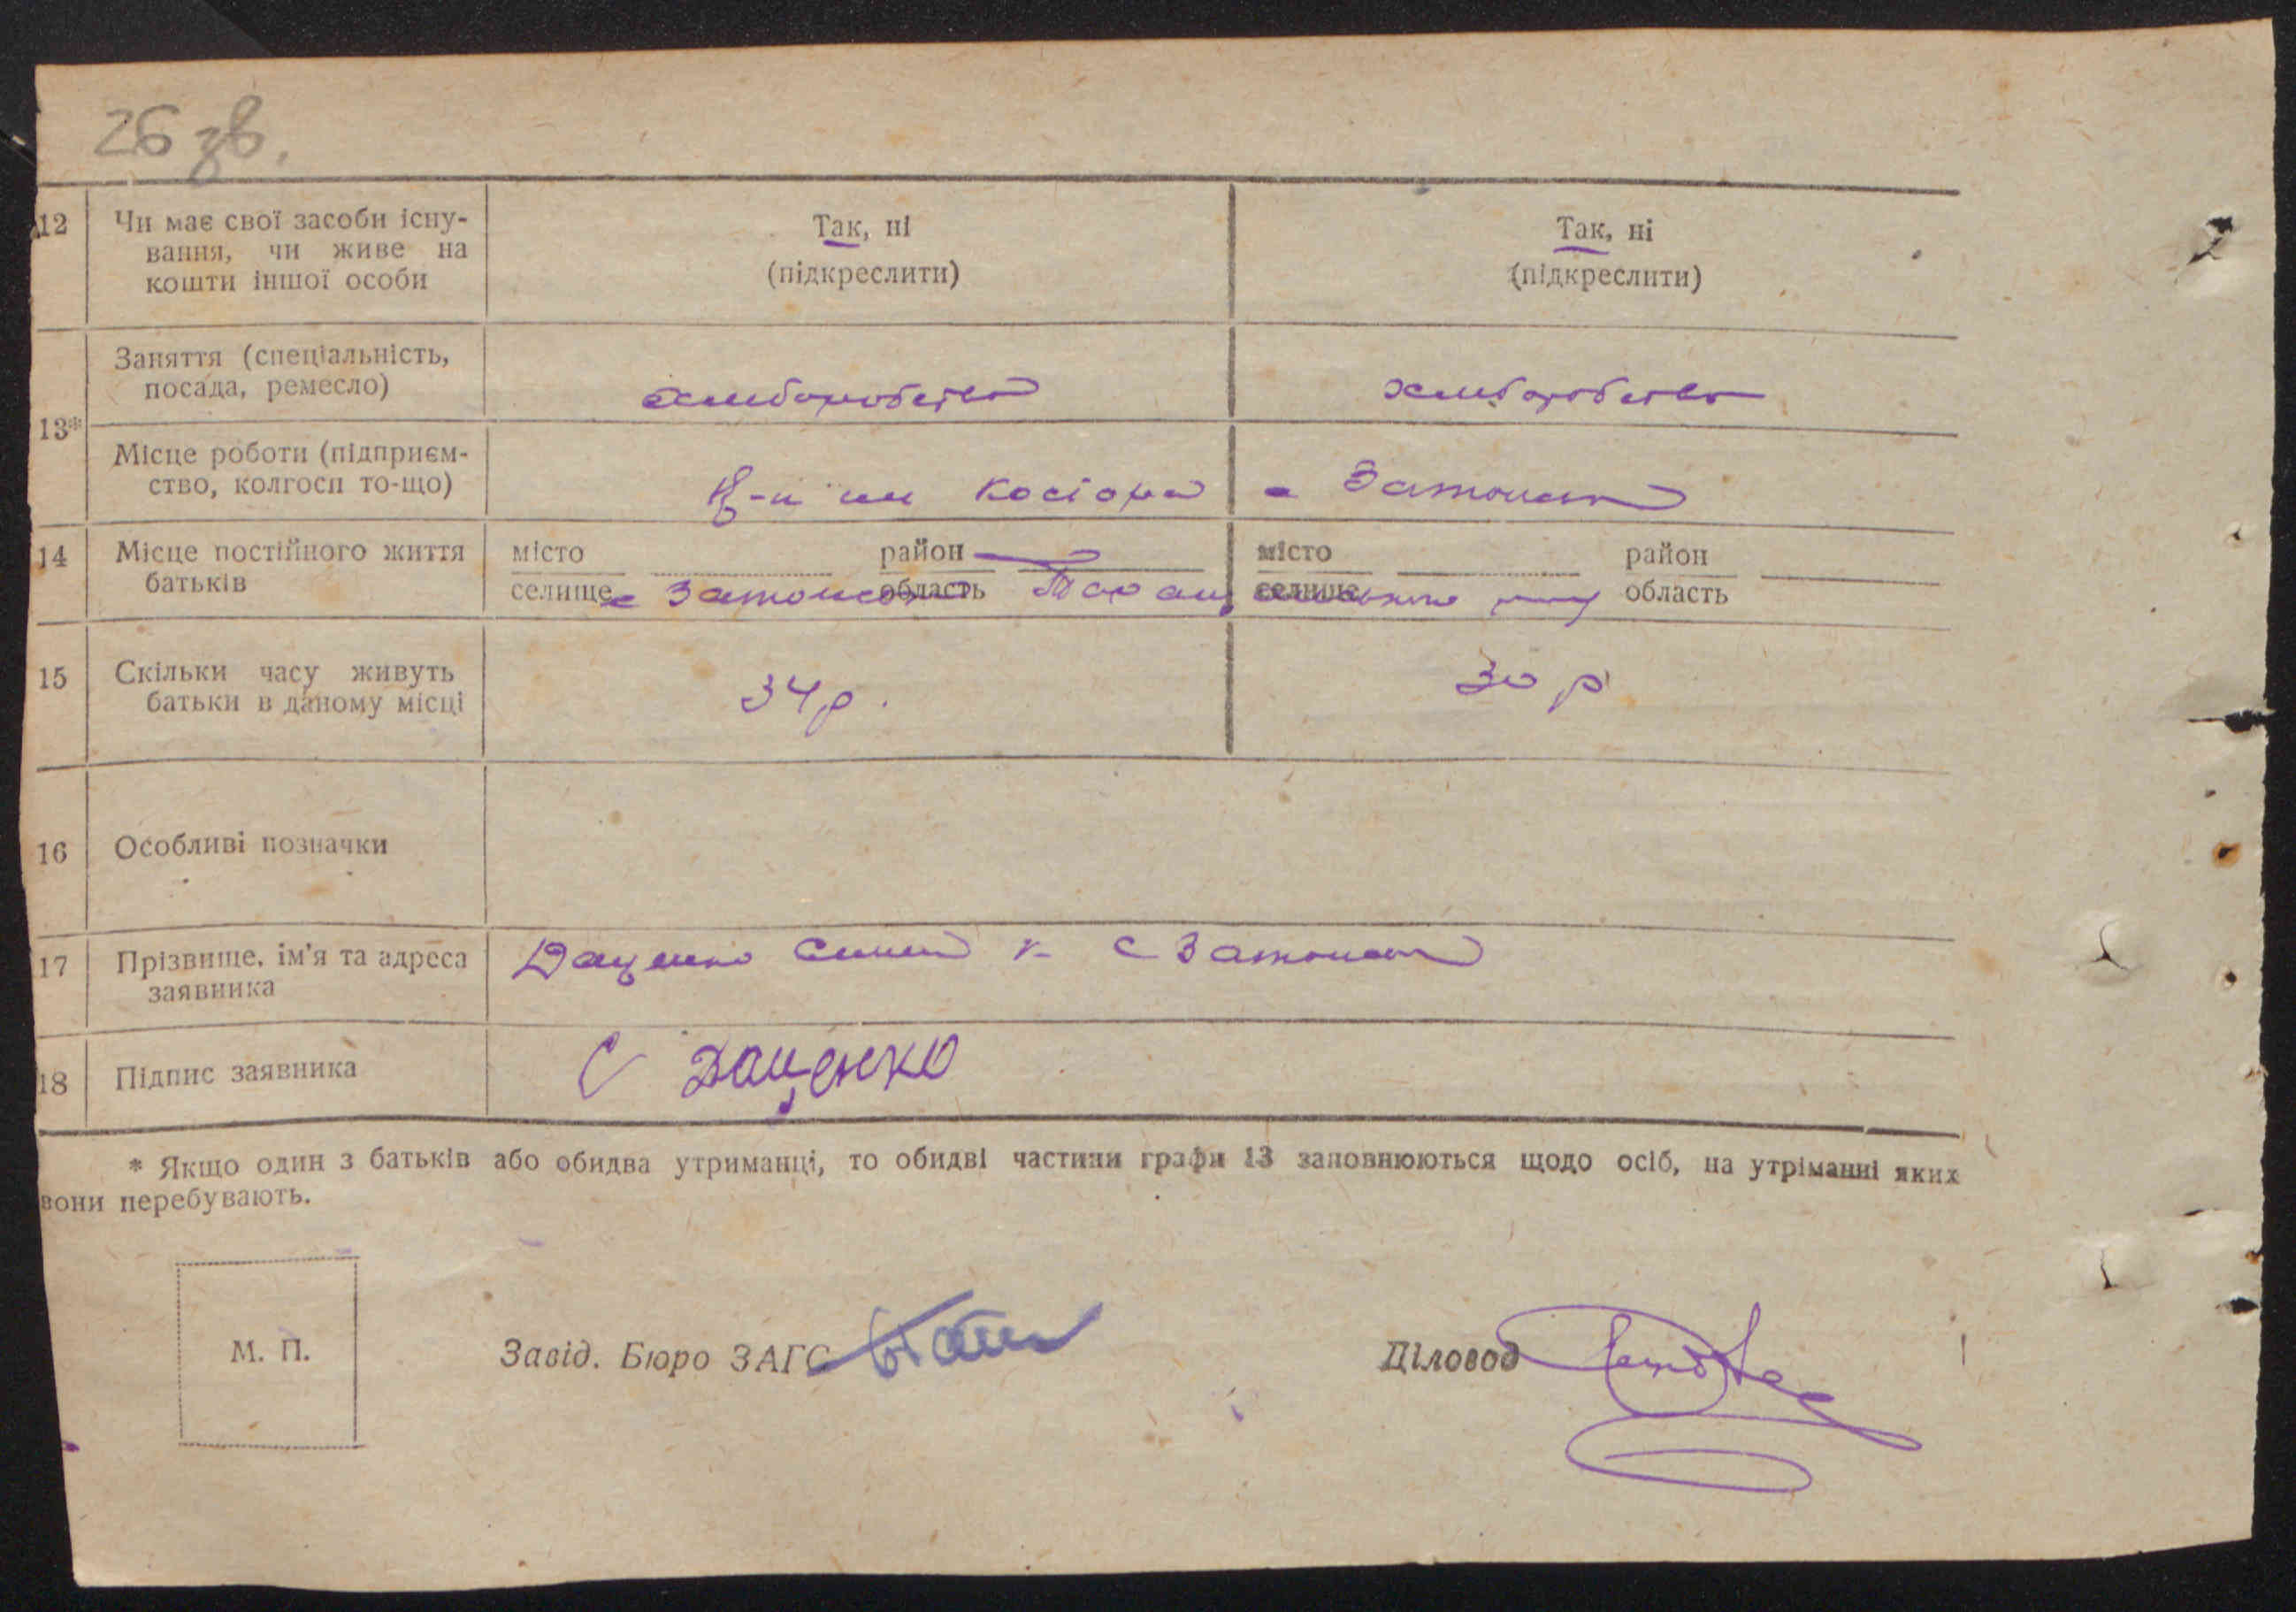 26 зв.
12 Чи має свої засоби існу-
вання, чи живе на
кошти іншої особи
Так, ні
(підкреслити)
Так, ні
(підкреслити)
13*
Заняття (спеціальність,
посада, ремесло)
хлиборобство
хлиборобство
Місце роботи (підприєм-
ство, колгосп то-що)
им Косіора с Затонськ
14 Місце постійного життя
батьків
місто район
селище область
с Затонськ
місто район
селище область
15 Скільки часу живуть
батьки в даному місці
34 р.
30 р
16 Особливі позначки
17 Прізвище, ім'я та адреса
заявника
Даценко с Затонськ
18 Підпис заявника
С Даценко
* Якщо один з батьків або обидва утриманці, то обидві частини графи 13 заповнюються щодо осіб, на утріманні яких
вони перебувають.
М. П.
Завід. Бюро ЗАГС
Діловод